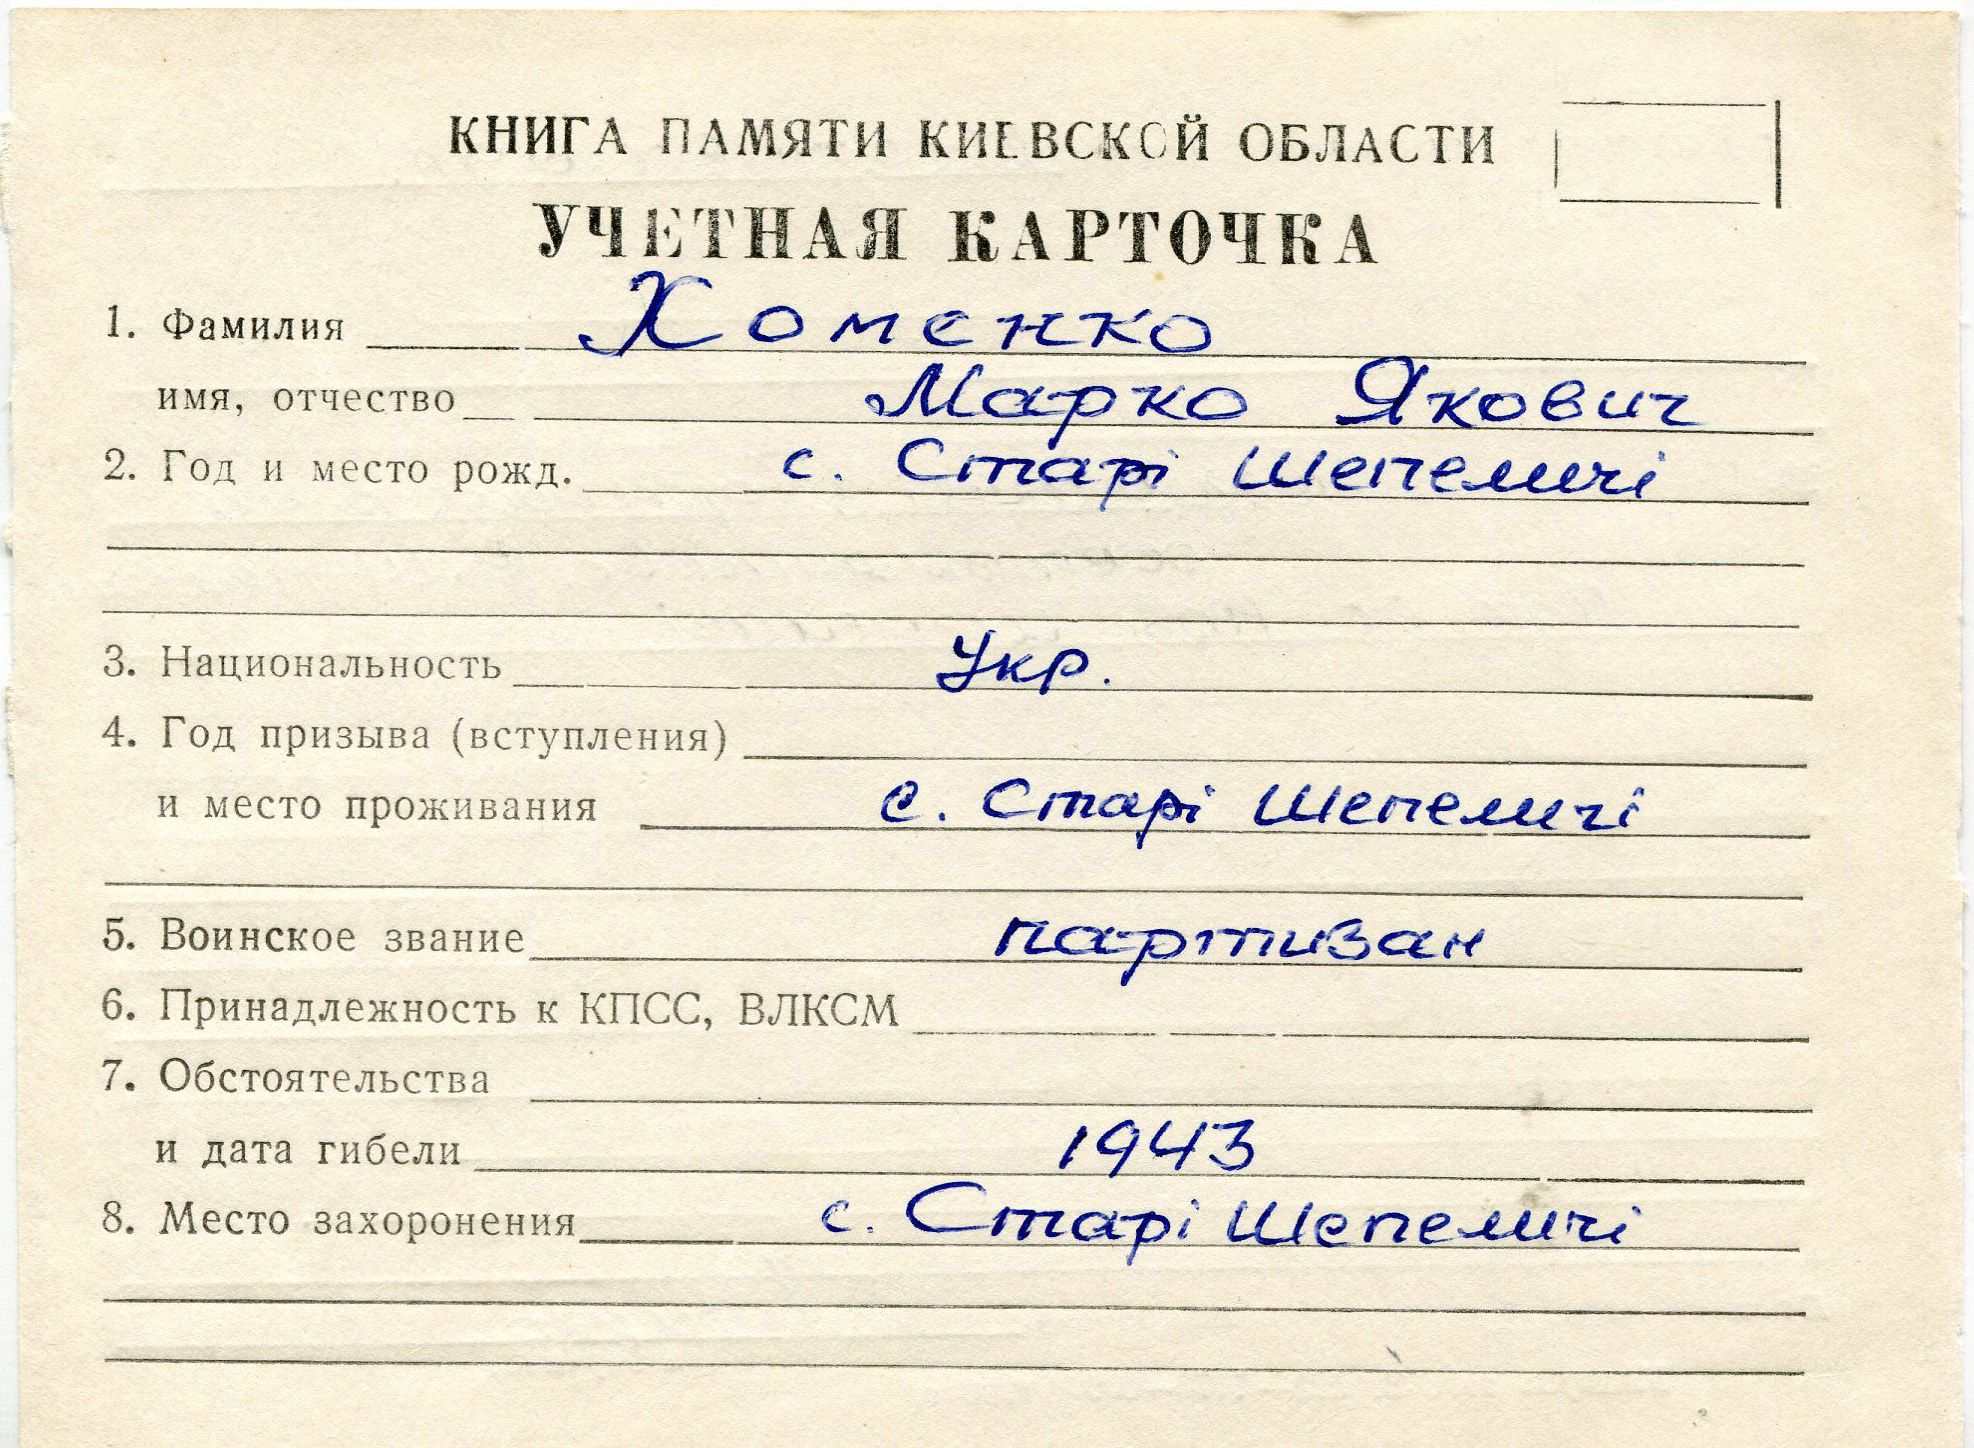 КНИГА ПАМЯТИ КИЕВСКОЙ ОБЛАСТИ
УЧЕТНАЯ КАРТОЧКА
1. Фамилия Хоменко
имя, отчество Марко Якович
2. Год и место рожд. с. Старі Шепеличі
3. Национальность Укр.
4. Год призыва (вступления)
и место проживания с. Старі Шепеличі
5. Воинское звание партизан
6. Принадлежность к КПСС, ВЛКСМ
7. Обстоятельства
и дата гибели 1943
8. Место захоронения с. Старі Шепеличі